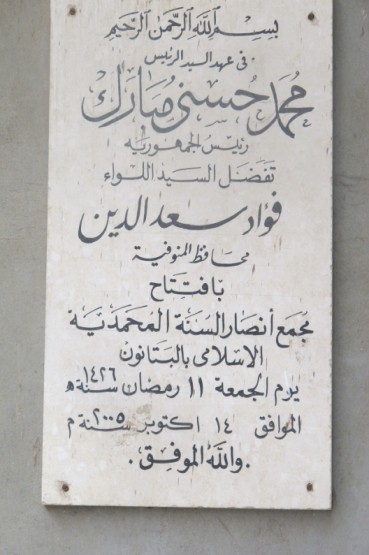 بسم الله الرحمن الرحيم
في عهد السيد الرئيس
محمد حسني مبارك
رئيس الجمهورية
تفضل السيد اللواء
فؤاد سعد الدين
محافظ المنوفية
بافتتاح
مجمع أنصار السنة المحمدية
الاسلامى بالبتانون
يوم الجمعة ١١ رمضان سنة ١٤٢٦ ه
الموافق ١٤ اكتوبر سنة ٢٠٠٥ م
والله الموفق